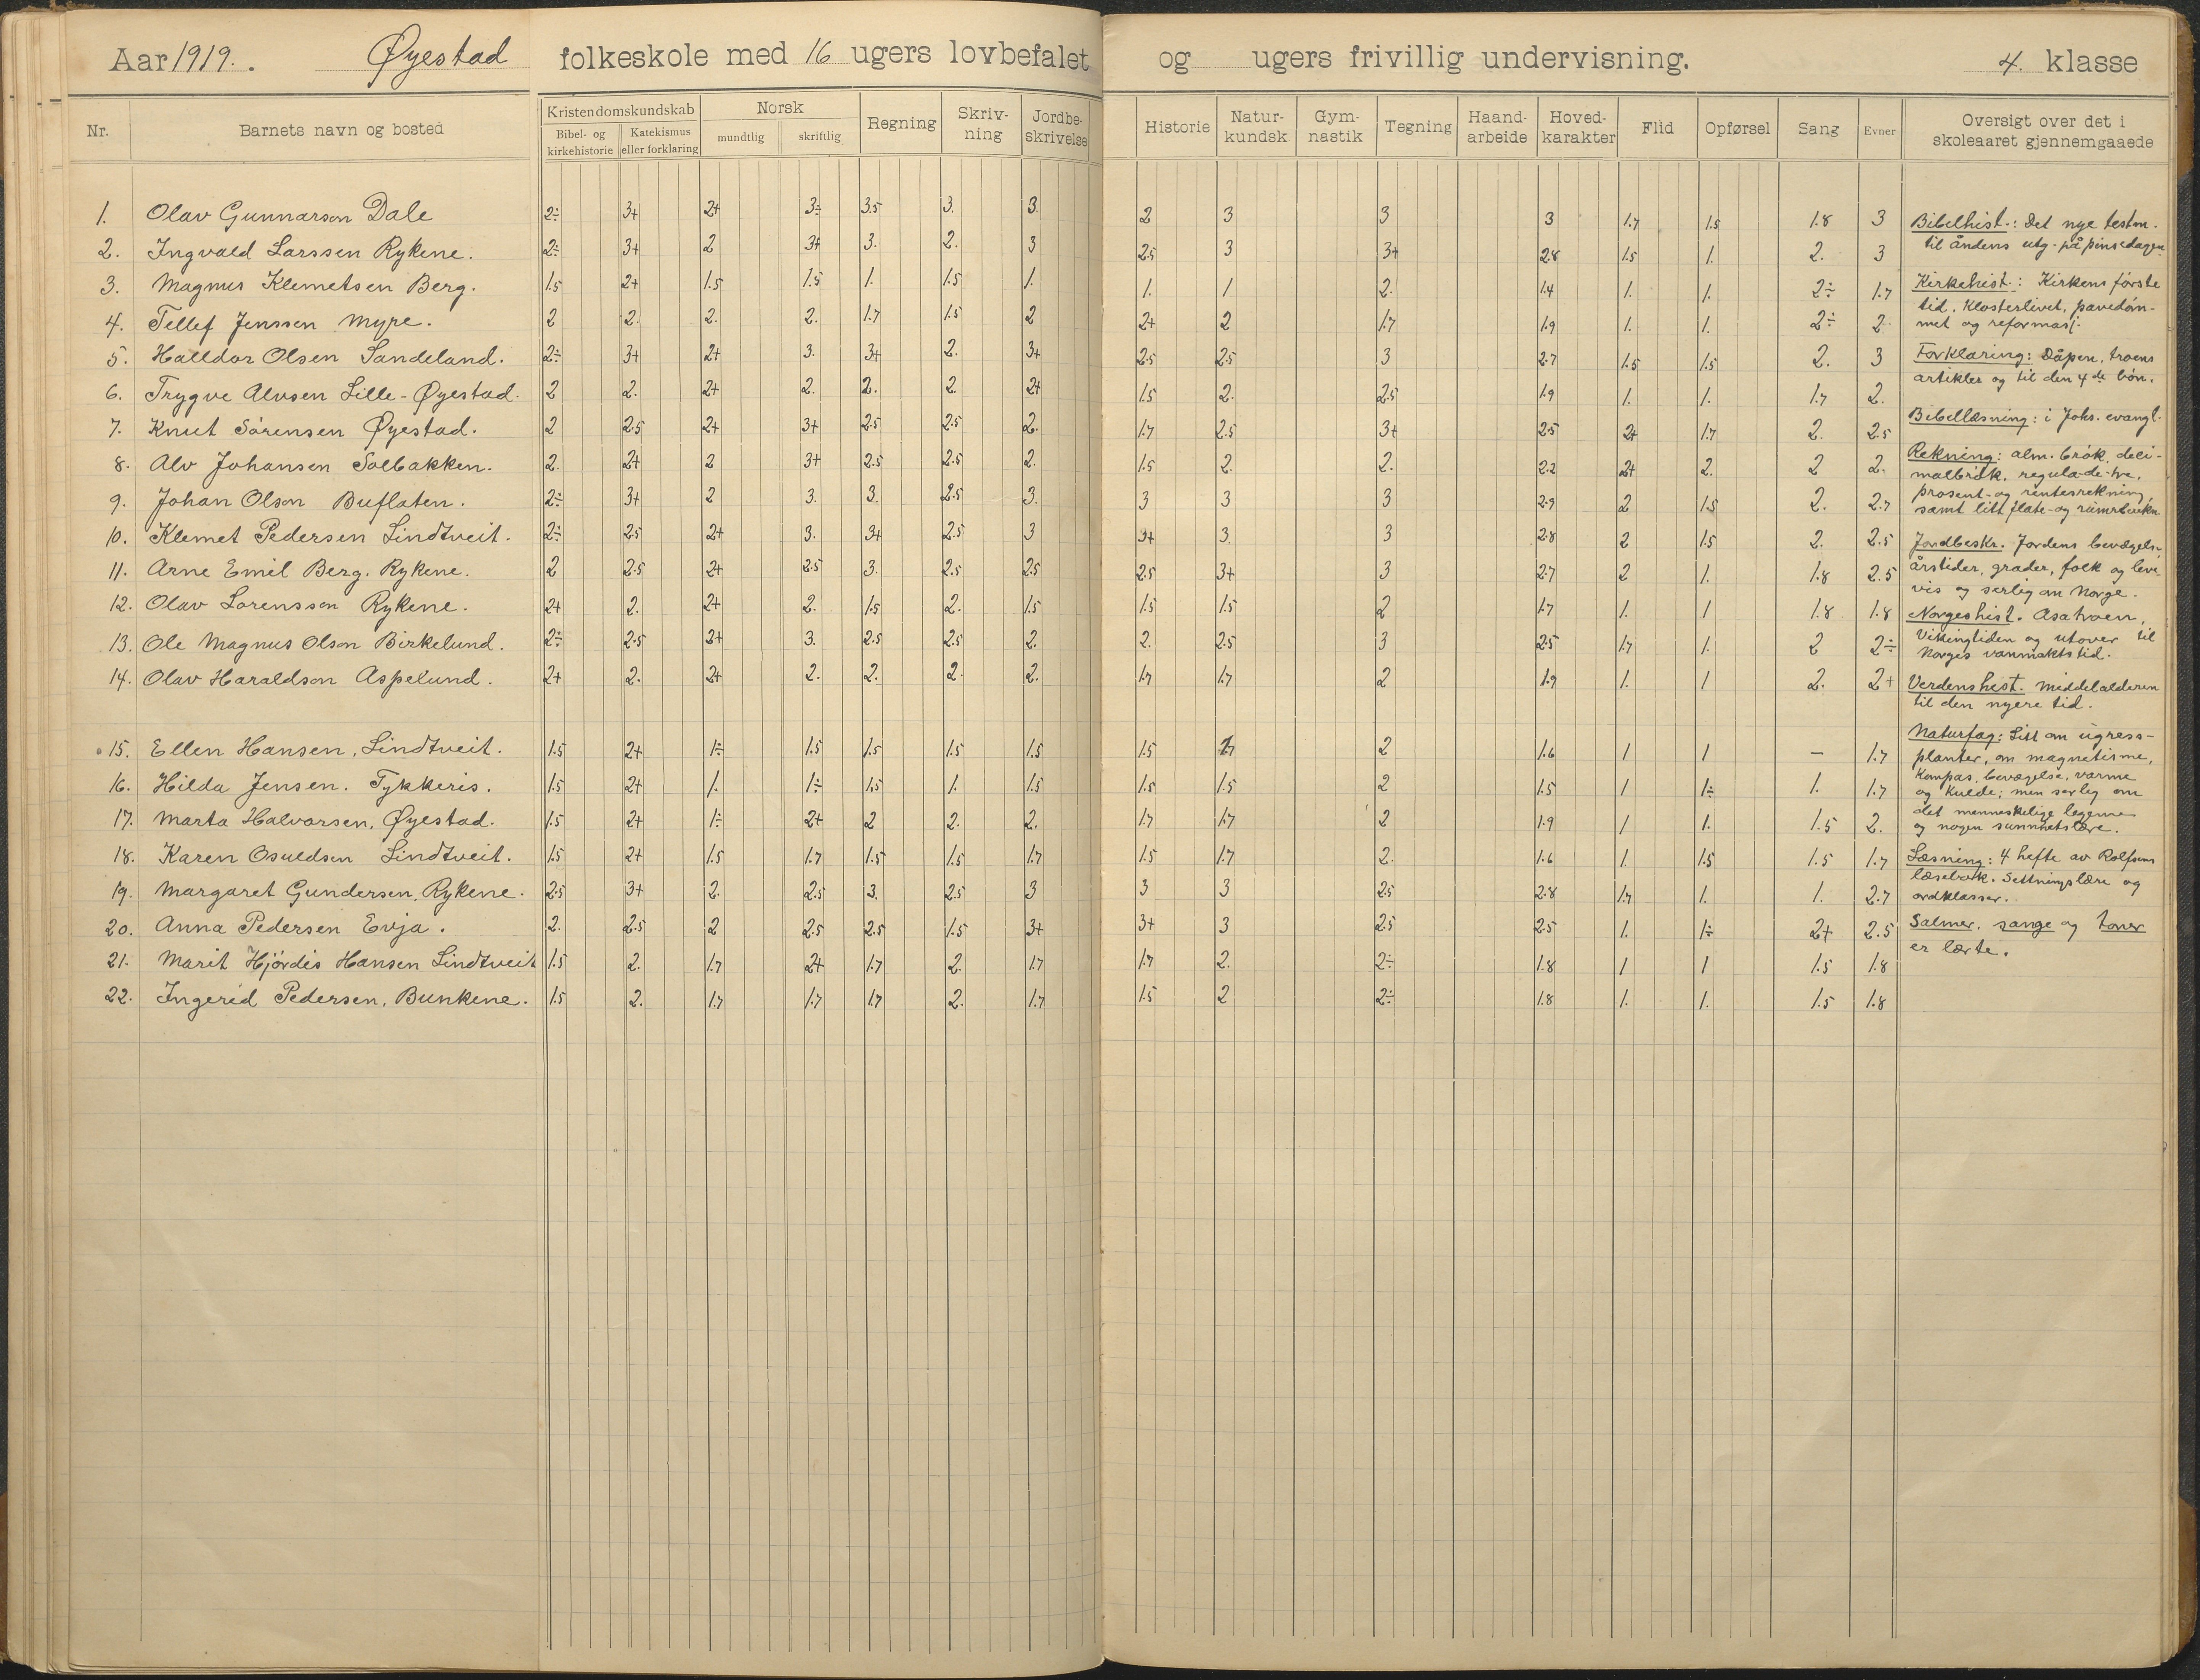 Aar 1919. Øyestad folkeskole med 16 ugers lovbefalet og ugers frivillig undervisning. 4. klasse
Nr. Barnets navn og bosted Kristendomskundskab Bibel- og kirkehistorie Katekismus eller forklaring Norsk mundtlig skriftlig Regning Skriv-ning Jordbe-skrivelse Historie Natur-kundsk Gym-nastik Tegning Haand-arbeide Hoved-karakter Flid Opførsel Sang Evner Oversigt over det i skoleaaret gjennemgaaede
1. Olav Gunnarson Dale 2÷ 3+ 2+ 3÷ 3.5 3. 3. 2 3 3 3 1.7 1.5 1.8 3
2. Ingvald Larssen Rykene. 2÷ 3+ 2 3+ 3. 2. 3 2.5 3 3+ 2.8 1.5 1. 2. 3
3. Magnus Klemetsen Berg. 1.5 2+ 1.5 1.5 1. 1.5 1. 1. 1 2. 1.4 1. 1. 2÷ 1.7
4. Tellef Jenssen Myre. 2 2. 2. 2. 1.7 1.5 2 2+ 2 1.7 1.9 1. 1. 2÷ 2.
5. Halldor Olsen Sandeland. 2÷ 3+ 2+ 3. 3+ 2. 3+ 2.5 2.5 3 2.7 1.5 1.5 2. 3
6. Trygve Alvsen Lille-Øyestad. 2 2. 2+ 2. 2. 2. 2+ 1.5 2. 2.5 1.9 1. 1. 1.7 2.
7. Knut Sörensen Øyestad. 2 2.5 2+ 3+ 2.5 2.5 2. 1.7 2.5 3+ 2.5 2+ 1.7 2. 2.5
8. Alv Johansen Solbakken. 2. 2+ 2 3+ 2.5 2.5 2. 1.5 2. 2. 2.2 2+ 2. 2 2.
9. Johan Olson Buflaten. 2÷ 3+ 2 3. 3. 2.5 3. 3 3 3 2.9 2 1.5 2. 2.7
10. Klemet Pedersen Lindtveit. 2÷ 2.5 2+ 3. 3+ 2.5 3 3+ 3. 3 2.8 2 1.5 2. 2.5
11. Arne Emil Berg. Rykene. 2 2.5 2+ 2.5 3. 2.5 2.5 2.5 3+ 3 2.7 2 1. 1.8 2.5
12. Olav Lorensson Rykene. 2+ 2. 2+ 2. 1.5 2. 1.5 1.5 1.5 2 1.7 1. 1 1.8 1.8
13. Ole Magnus Olson Birkelund. 2÷ 2.5 2+ 3. 2.5 2.5 2. 2. 2.5 3 2.5 1.7 1. 2 2÷
14. Olav Haraldson Aspelund. 2+ 2. 2+ 2. 2. 2. 2. 1.7 1.7 2 1.9 1. 1 2. 2+
15. Ellen Hansen, Lindtveit. 1.5 2+ 1÷ 1.5 1.5 1.5 1.5 1.5 1.7 2 1.6 1 1 – 1.7
16. Hilda Jensen. Tykkeris. 1.5 2+ 1. 1÷ 1.5 1. 1.5 1.5 1.5 2 1.5 1 1÷ 1. 1.7
17. Marta Halvorsen, Øyestad. 1.5 2+ 1÷ 2+ 2 2. 2. 1.7 1.7 2 1.9 1 1. 1.5 2.
18. Karen Osuldsen Lindtveit. 1.5 2+ 1.5 1.7 1.5 1.5 1.7 1.5 1.7 2. 1.6 1. 1.5 1.5 1.7
19. Margaret Gundersen, Rykene. 2.5 3+ 2. 2.5 3. 2.5 3 3 3 2.5 2.8 1.7 1. 1. 2.7
20. Anna Pedersen Evja. 2. 2.5 2 2.5 2.5 1.5 3+ 3+ 3 2.5 2.5 1. 1÷ 2+ 2.5
21. Marit Hjördis Hansen Lindtveit 1.5 2. 1.7 2+ 1.7 2. 1.7 1.7 2. 2÷ 1.8 1 1 1.5 1.8
22. Ingerid Pedersen, Bunkene. 1.5 2. 1.7 1.7 1.7 2. 1.7 1.5 2 2÷ 1.8 1. 1. 1.5 1.8
Bibelhist.: Det nye testm.
til åndens utg. på pinsedagen.
Kirkehist.: Kirkens første
tid, Klosterlivet, pavedöm-
met og reformasj.
Forklaring: Dåpen, troens
artikler og til den 4de bön.
Bibellæsning: i Johs. evangl.
Rekning: alm. brök, deci-
malbrök, regula-de-tre,
prosent- og rentesrekning,
samt litt flate- og
Jordbeskr. Jordens bevægelse,
årstider, grader, folk og leve-
vis og serlig om Norge.
Norgeshist. Asatroen,
Vikingtiden og utover til
Norges vanmaktstid.
Verdenshist. Middelalderen
til den nyere tid.
Naturfag: Litt om ugress-
planter, om magnetisme,
Kompas, bevægelse, varme
og Kulde; men serleg om
det menneskelige legeme
og nogen sunnhetslære.
Læsning: 4 hefte av Rolfsens
læsebok. Settningslære og
ordklasser.
Salmer, sange og toner
er lærte.